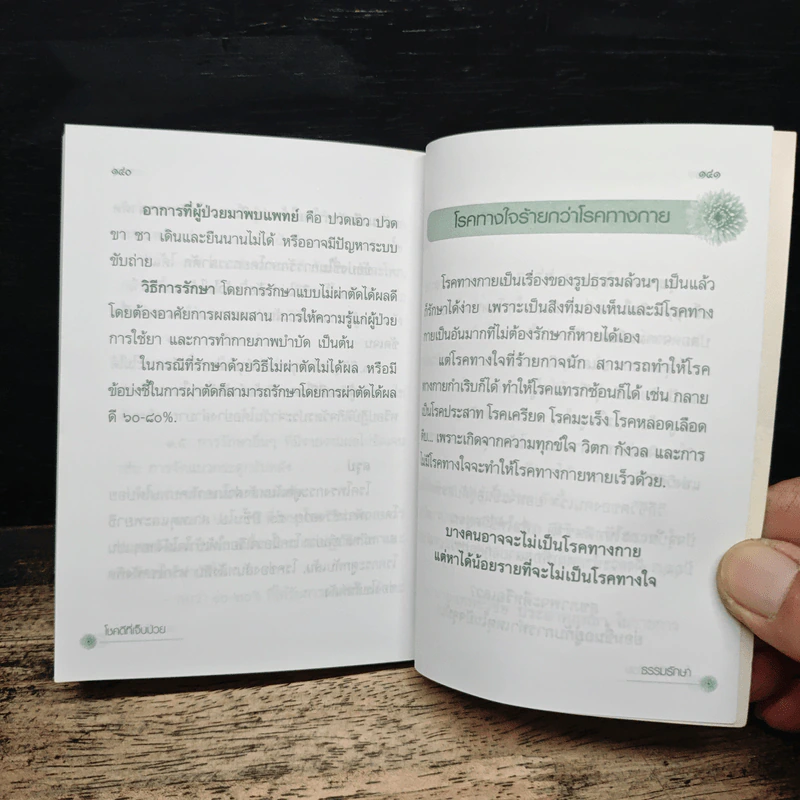 ๑๔๐
อาการที่ผู้ป่วยมาพบแพทย์ คือ ปวดเอว ปวด
ขา ชา เดินและยืนนานไม่ได้ หรืออาจมีปัญหาระบบ
ขับถ่าย
วิธีการรักษา โดยการรักษาแบบไม่ผ่าตัดได้ผลดี
โดยต้องอาศัยการผสมผสาน การให้ความรู้แก่ผู้ป่วย
การใช้ยา และการทำกายภาพบำบัด เป็นต้น
ในกรณีที่รักษาด้วยวิธีไม่ผ่าตัดไม่ได้ผล หรือมี
ข้อบ่งชี้ในการผ่าตัดก็สามารถรักษาโดยการผ่าตัดได้ผล
ดี ๖๐-๘๐%.
โชคดีที่เจ็บป่วย
๑๔๑
โรคทางใจร้ายกว่าโรคทางกาย
โรคทางกายเป็นเรื่องของรูปธรรมล้วนๆ เป็นแล้ว
ก็รักษาได้ง่าย เพราะเป็นสิ่งที่มองเห็นและมีโรคทาง
กายเป็นอันมากที่ไม่ต้องรักษาก็หายได้เอง
แต่โรคทางใจที่ร้ายกาจนัก สามารถทำให้โรค
ทางกายกำเริบก็ได้ ทำให้โรคแทรกซ้อนก็ได้ เช่น กลาย
เป็นโรคประสาท โรคเครียด โรคมะเร็ง โรคหลอดเลือด
ตีบ... เพราะเกิดจากความทุกข์ใจ วิตก กังวล และการ
ไม่มีโรคทางใจจะทำให้โรคทางกายหายเร็วด้วย.
บางคนอาจจะไม่เป็นโรคทางกาย
แต่หาได้น้อยรายที่จะไม่เป็นโรคทางใจ
ธรรมรักษา